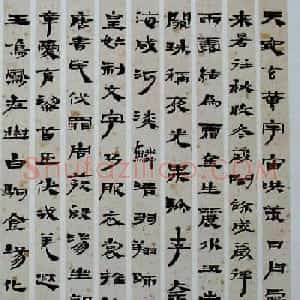 天地玄黄宇宙洪荒日月盈
来暑往秋收冬藏閏餘成歲律
雨露結為霜金生麗水玉
闕珠稱夜光果珍李柰
海鹹河淡鱗羽翔師
皇始制文字乃服衣裳推
唐弔民伐罪周發殷湯坐
章愛育黎首臣伏戎羌
王鳴鳳在樹白駒食場化